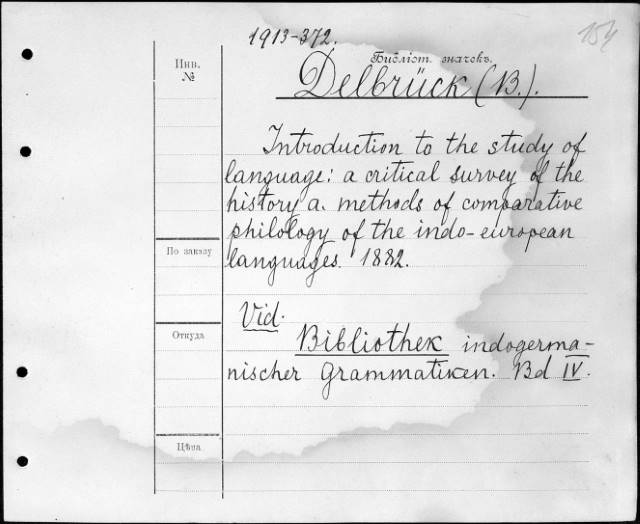 1913-372.
154
Инв.
№
Библіот. значекъ.
Delbrück (B.).
Introduction to the study of
language: a critical survey of the
history a. methods of comparative
philology of the indo-european
languages. 1882.
По заказу
Vid.
Откуда
Bibliothek indogerma-
nischer Grammatiken. Bd IV.
Цѣна